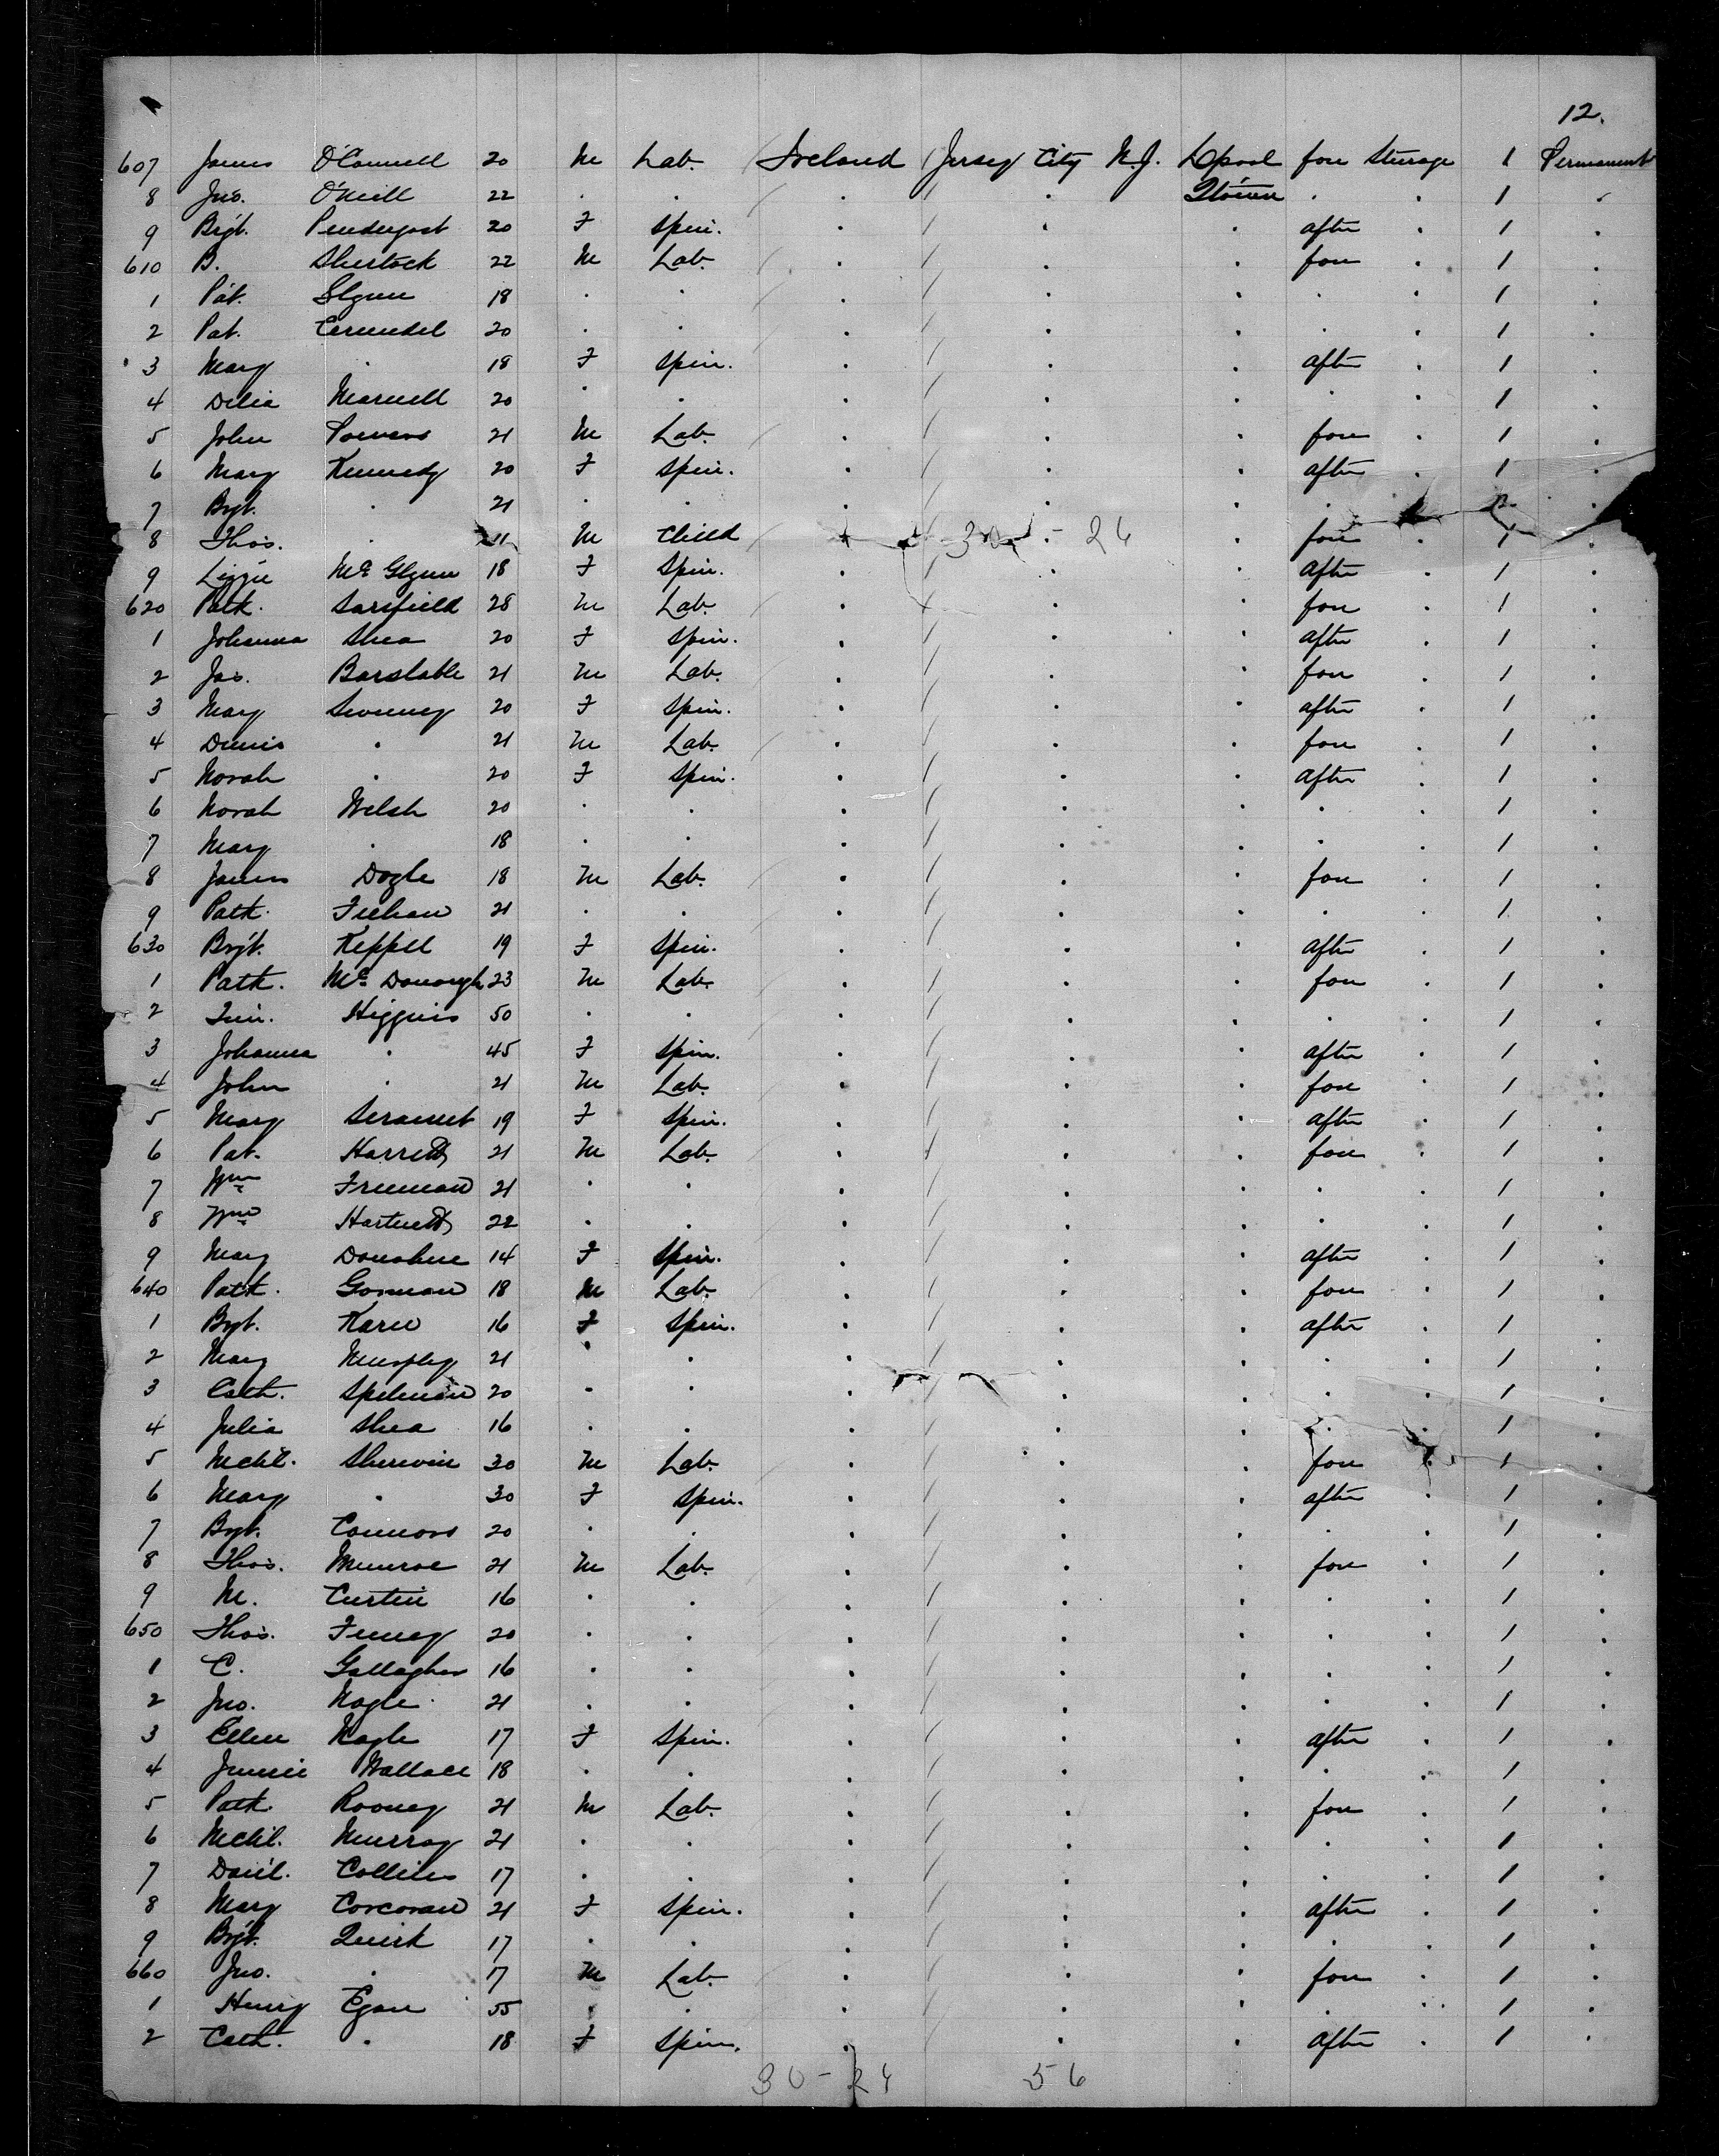 12.
607 James O'Connell 20 M Lab. Ireland Jersey City N.J. L'pool fore Steerage 1 Permanent
8 Jno. O'Neill 22 . . . . Q'town . . 1 "
9 Brgt. Pendergast 20 F Spin. . . . after . 1 .
610 B. Sherlock 22 M Lab. . . . fore . 1 .
1 Pat. Glynn 18 . . . . . . . 1 .
2 Pat. 20 . . . . . . . 1 .
3 Mary . 18 F Spin. . . . after . 1 .
4 Delia 20 . . . . . . . 1 .
5 John Powers 21 M Lab. . . . fore . 1 .
6 Mary Kennedy 20 F Spin. . . . after . 1 .
7 Brgt. . 21 . . . . . . . .
8 Thos. . 11 M Child . . . fore . 1 .
30 - 26
9 Lizzie Mc Glynn 18 F Spin. . . . after . 1 .
620 Patk. Sarsfield 28 M Lab. . . . fore . 1 .
1 Johanna Shea 20 F Spin. . . . after . 1 .
2 Jas. Barstable 21 M Lab. . . . fore . 1 .
3 Mary Sweeney 20 F Spin. . . . after . 1 .
4 Denis . 21 M Lab. . . . fore . 1 .
5 Norah . 20 F Spin. . . . after . 1 .
6 Norah Welsh 20 . . . . . . . 1 .
7 Mary . 18 . . . . . . . 1 .
8 James Doyle 18 M Lab. . . . fore . 1 .
9 Patk. Feehan 21 . . . . . . . 1 .
630 Brgt. Keppel 19 F Spin. . . . after . 1 .
1 Patk. Mc Donough 23 M Lab. . . . fore . 1 .
2 Tim. Higgins 50 . . . . . . . 1 .
3 Johanna . 45 F Spin. . . . after . 1 .
4 John . 21 M Lab. . . . fore . 1 .
5 Mary 19 F Spin. . . . after . 1 .
6 Pat. 21 M Lab. . . . fore . 1 .
7 Wm Freeman 21 . . . . . . . 1 .
8 Wm Hartnett 22 . . . . . . . 1 .
9 Mary Donohue 14 F Spin. . . . after . 1 .
640 Patk. Gorman 18 M Lab. . . . fore . 1 .
1 Brgt. 16 F Spin. . . . after . 1 .
2 Mary Murphy 21 . . . . . . . 1 .
3 Cath. Spelman 20 . . . . . . . 1 .
4 Julia Shea 16 . . . . . . . 1 .
5 Mchl. Sherwin 30 M Lab. . . . fore . 1 .
6 Mary . 30 F Spin. . . . after . 1 .
7 Brgt. Connors 20 . . . . . . . 1 .
8 Thos. Munroe 21 M Lab. . . . fore . 1 .
9 M. Curtin 16 . . . . . . . 1 .
650 Thos. Feeney 20 . . . . . . . 1 .
1 C. Gallagher 16 . . . . . . . 1 .
2 Jno. Nagle 21 . . . . . . . 1 .
3 Ellen Nagle 17 F Spin. . . . after . 1 .
4 Jennie Wallace 18 . . . . . . . 1 .
5 Patk. Rooney 21 M Lab. . . . fore . 1 .
6 Mchl. Murray 21 . . . . . . . 1 .
7 Danl. Collins 17 . . . . . . . 1 .
8 Mary Corcoran 21 F Spin. . . . after . 1 .
9 Brgt. Quirk 17 . . . . . . . 1 .
660 Jno. . 17 M Lab. . . . fore . 1 .
1 Henry Egan 55 . . . . . . . 1 .
2 Cath. . 18 F Spin. . . . after . 1 .
30 - 26 56